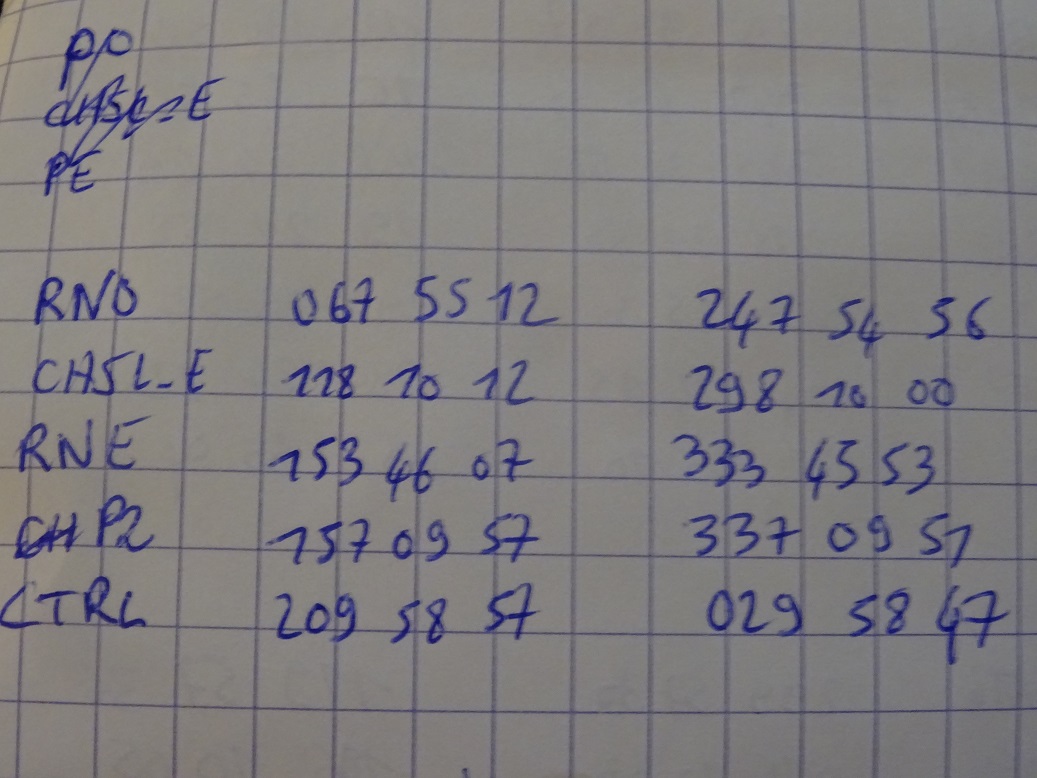 PO
CH5L-E
PE
RNO 067 55 12 247 54 56
CH5L-E 118 10 12 298 10 00
RNE 153 46 07 333 45 53
CHP2 157 09 57 337 09 51
CTRL 209 58 57 029 58 47